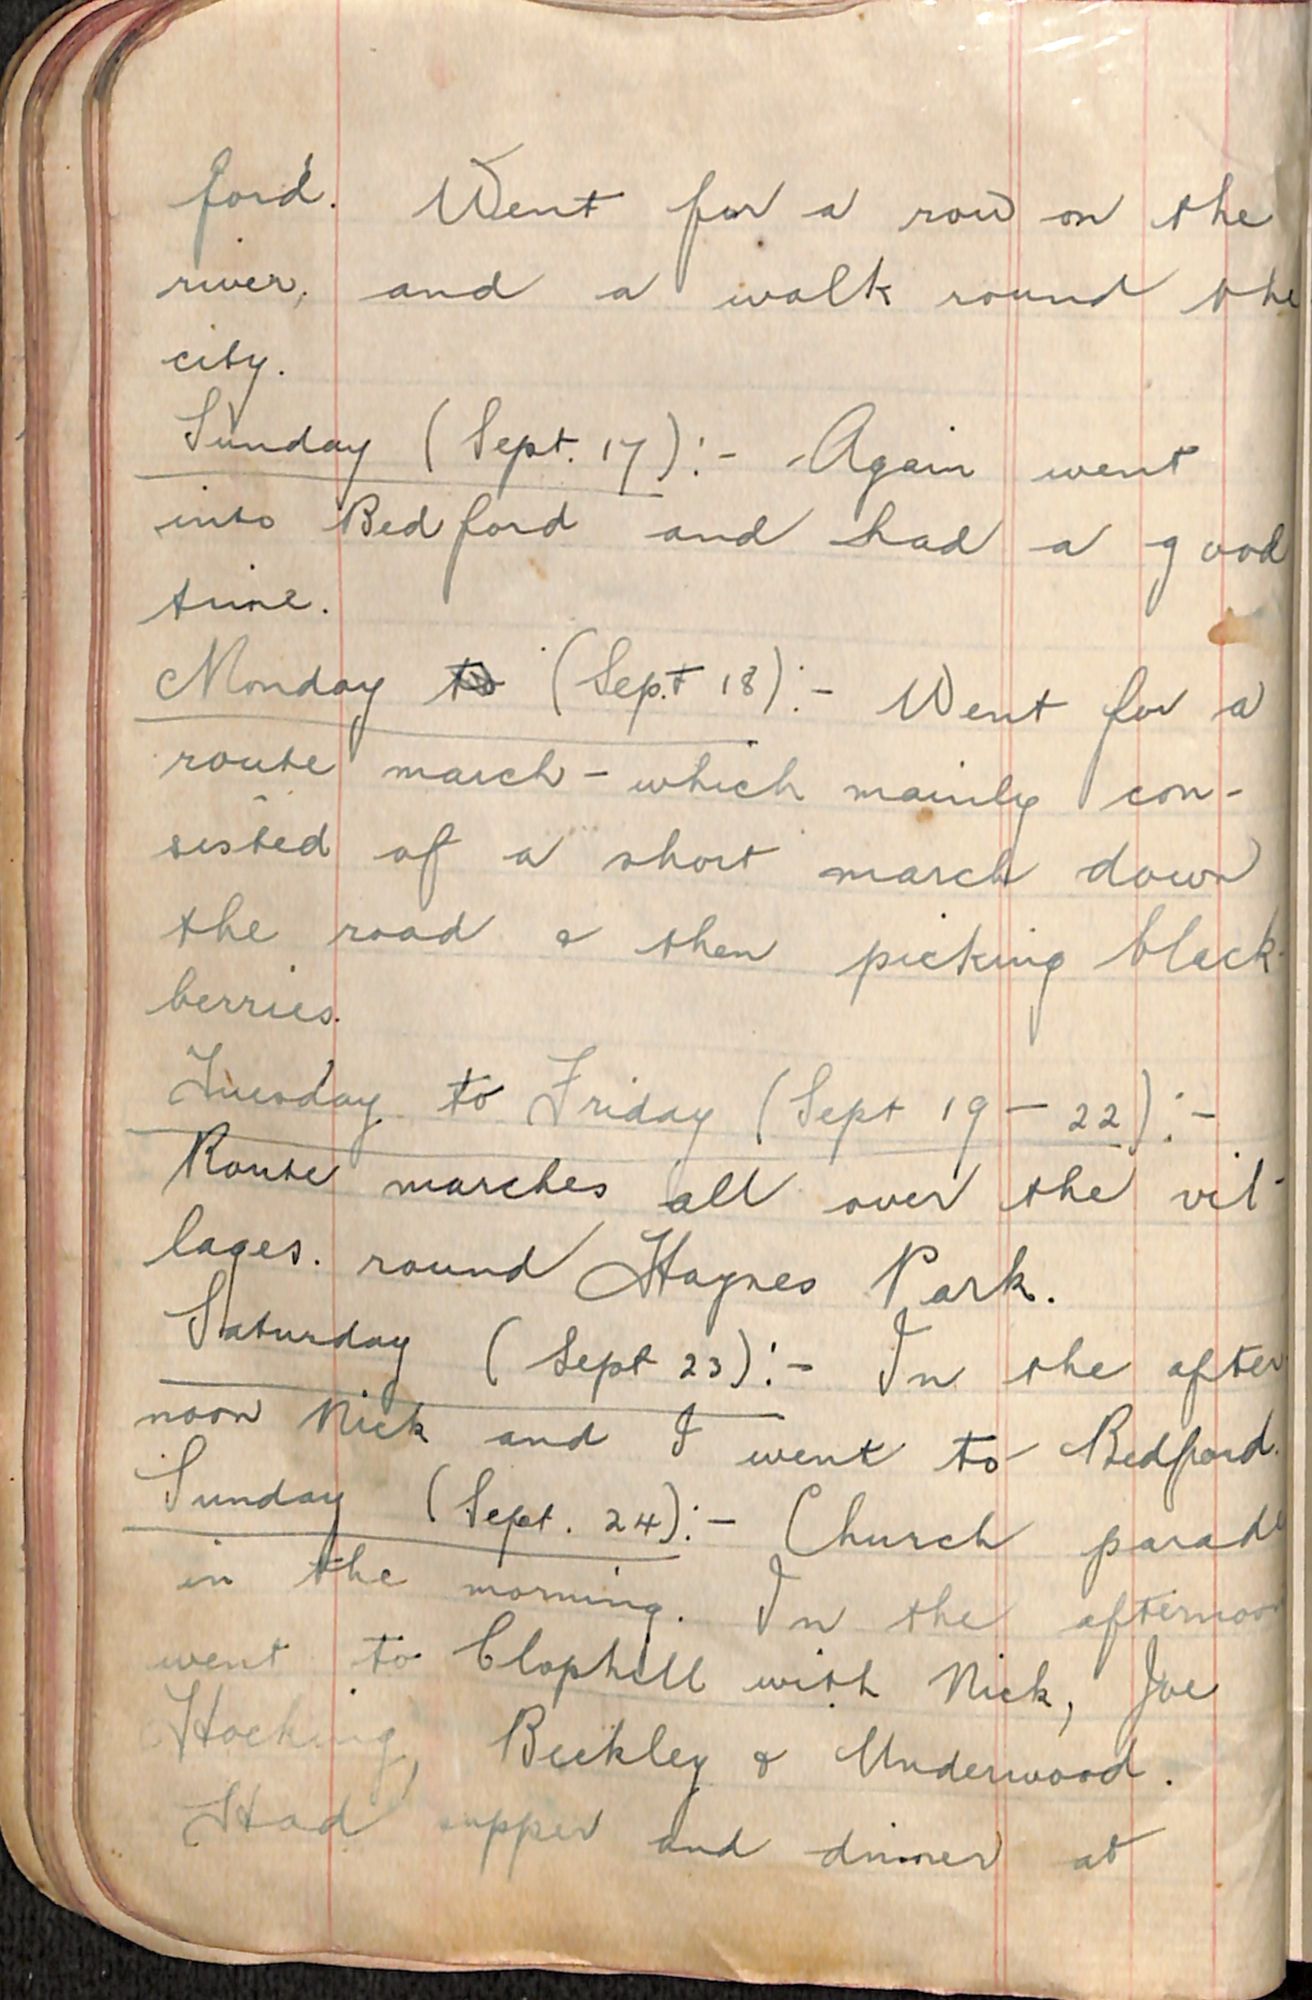 ford. Went for a row on the
river, and a walk round the
city.
Sunday (Sept. 17):- Again went
into Bedford and had a good
time.
Monday to (Sept 18):- Went for a
route march - which mainly con-
sisted of a short march down
the road & then picking black-
berries.
Tuesday to Friday (Sept 19 - 22):-
Route marches all over the vil-
lages. round Haynes Park.
Saturday (Sept 23):- In the after
noon Nick and I went to Bedford.
Sunday (Sept. 24):- Church parade
in the morning. In the afternoon
went to Clophill with Nick, Joe
Hocking, Bickley & Underwood.
Had supper and dinner at